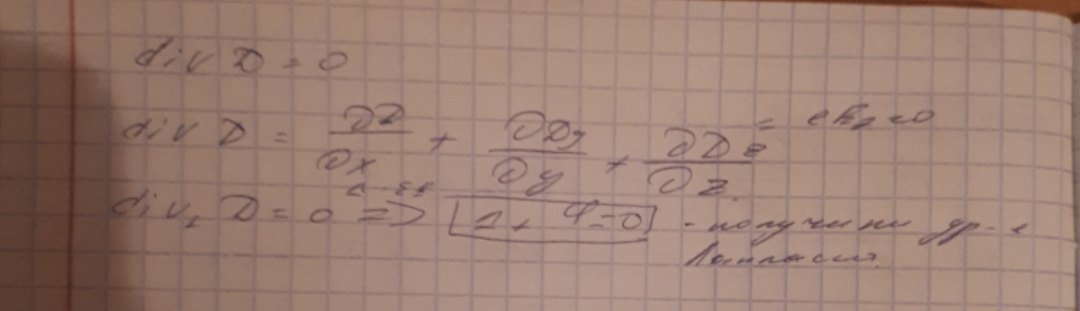 div D = 0
div D = ∂D/∂x + ∂Dy/∂y + ∂Dz/∂z =
div₁ D = 0 => 1 + φ = 0 - получили ур-е
Лапласа.